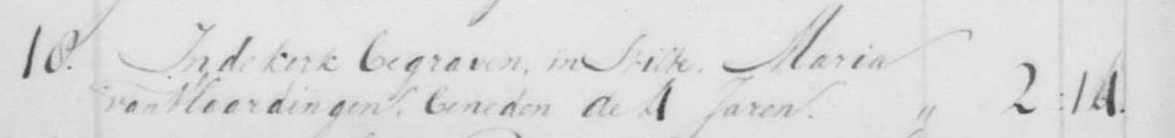 18. In de kerk begraven, in Stilte. Maria
van Vlaardingen, beneden de 4 Jaren. " 2:14.